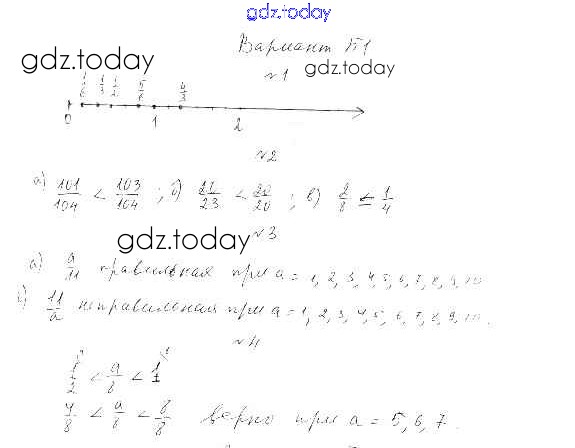 gdz.today
Вариант П1
gdz.today
№1 gdz.today
1/6 1/3 1/2 5/6 4/3
0 1 2
№2
а) 101/104 < 103/104 ; б) 21/23 < 20/20 ; в) 2/8 ≤ 1/4
gdz.today №3
а) a/11 правильная при a = 1, 2, 3, 4, 5, 6, 7, 8, 9, 10
б) 11/a неправильная при a = 1, 2, 3, 4, 5, 6, 7, 8, 9, 10.
№4
1/2 < a/8 < 1
4/8 < a/8 < 8/8 верно при a = 5, 6, 7.